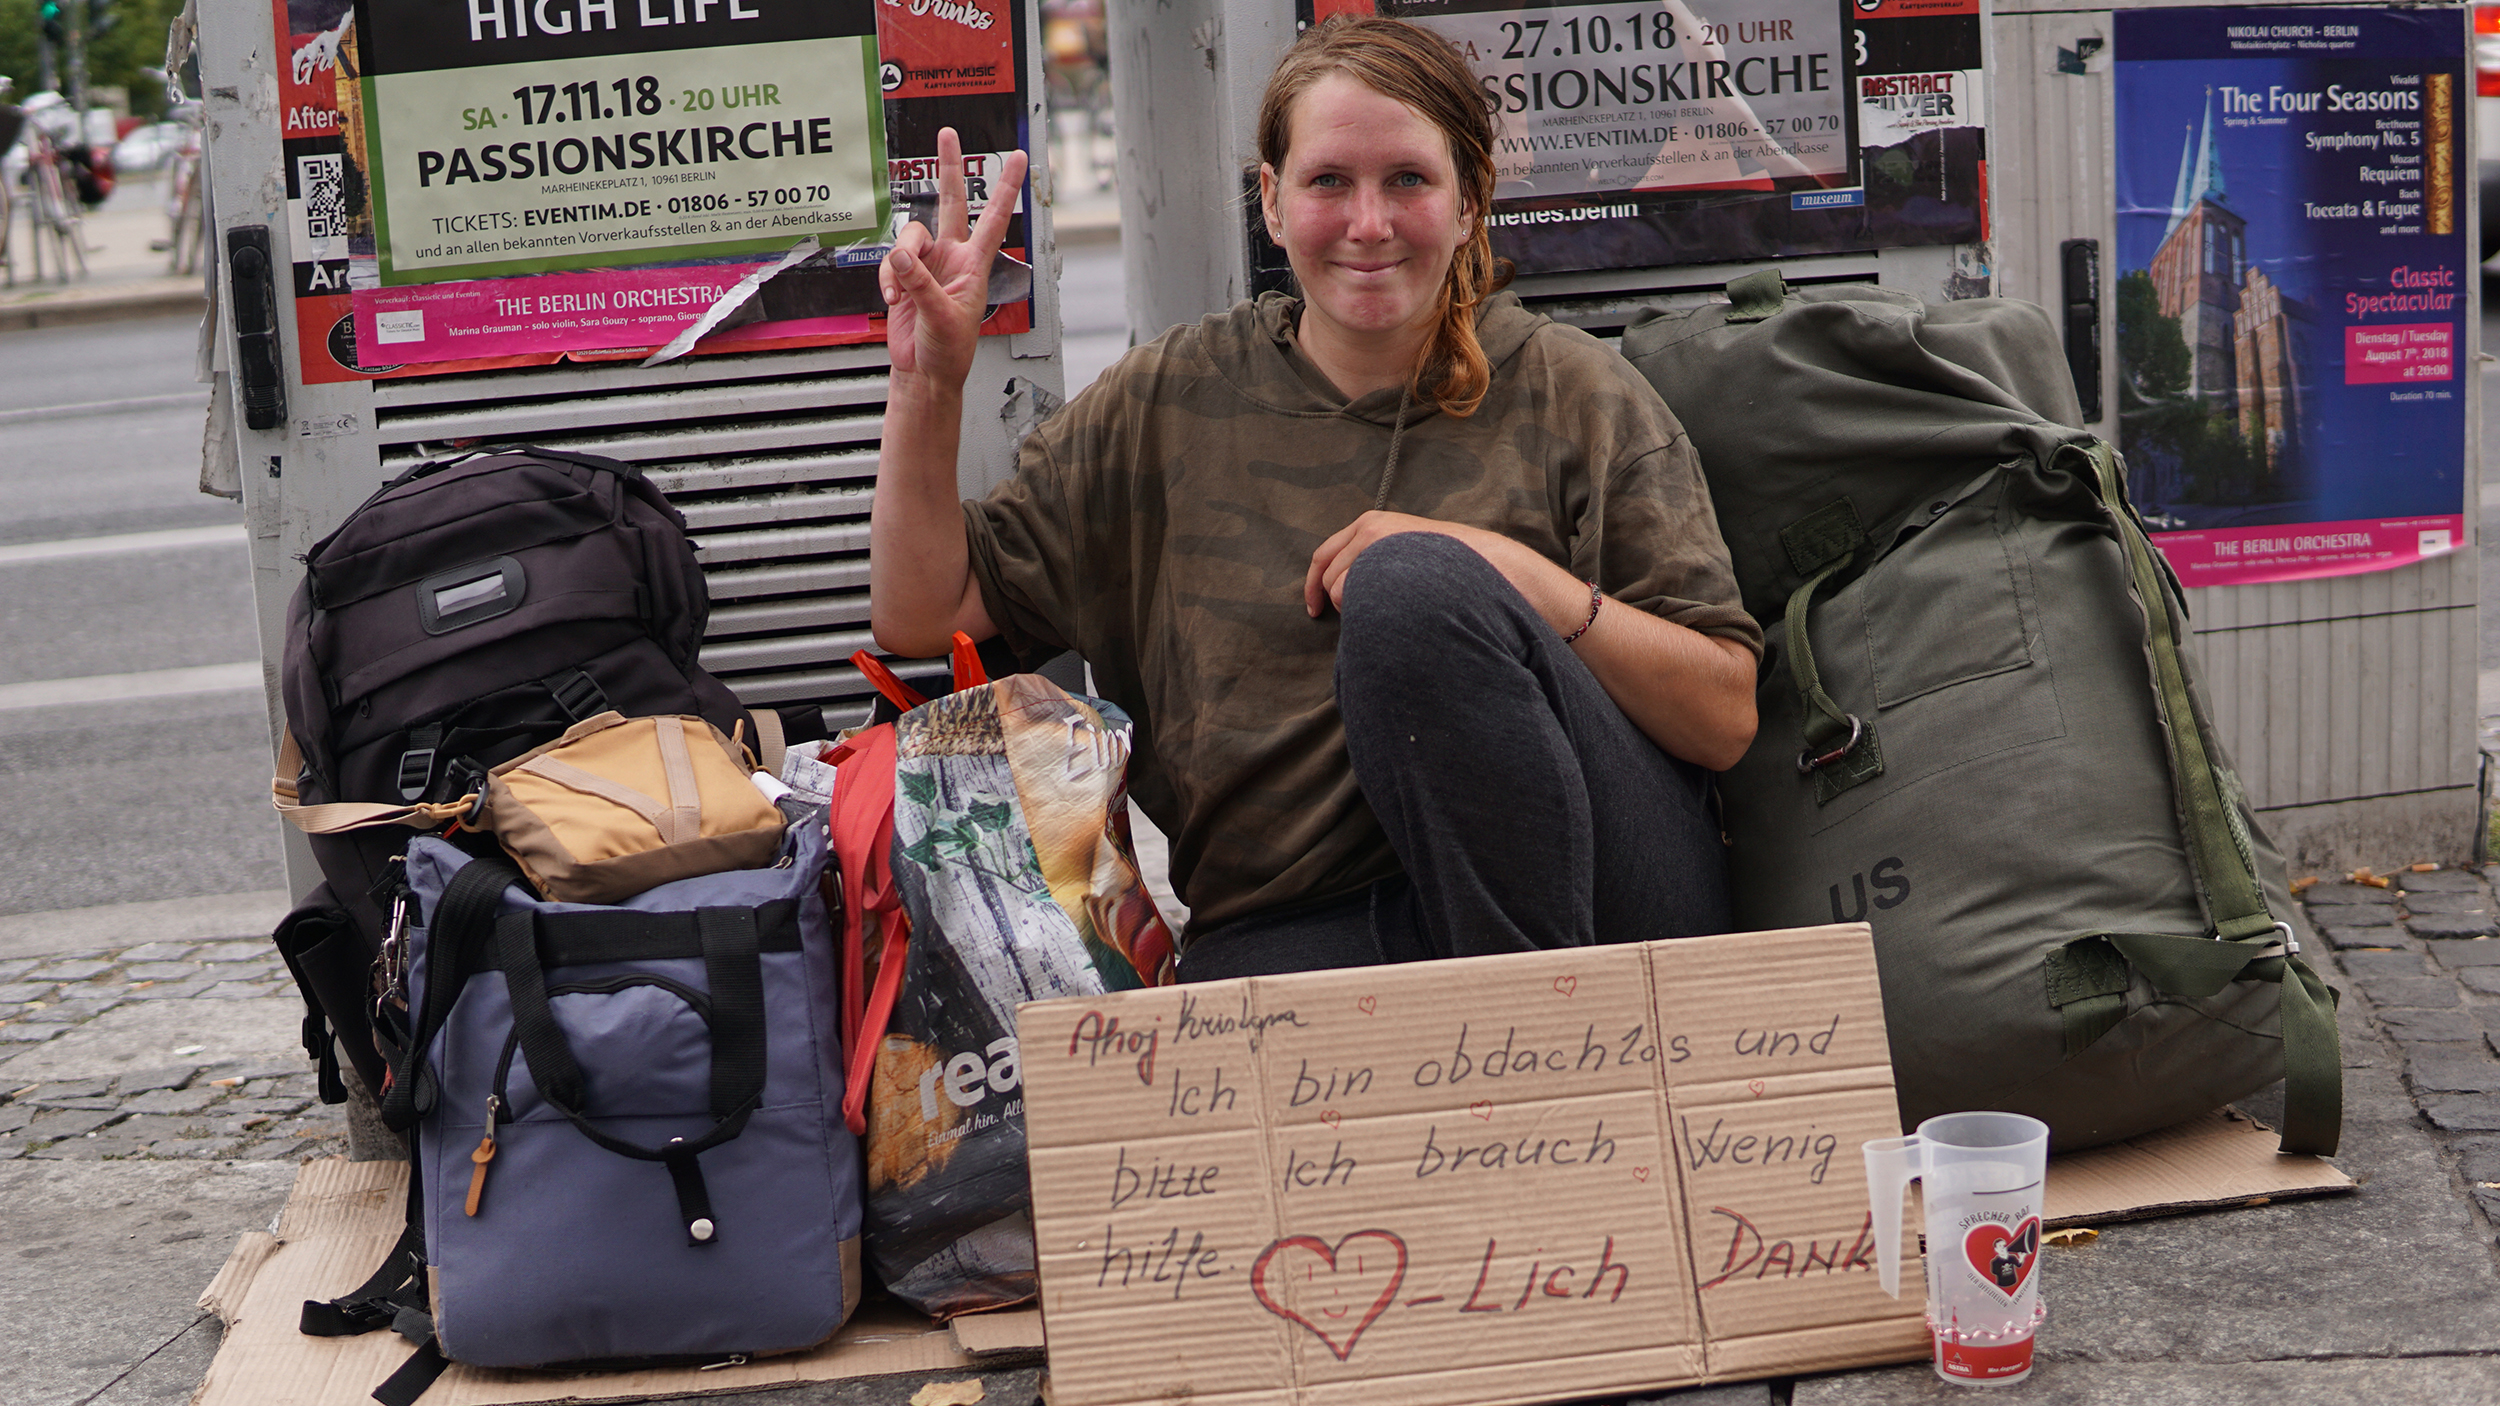 HIGH LIFE
SA · 17.11.18 · 20 UHR
PASSIONSKIRCHE
MARHEINEKEPLATZ 1, 10961 BERLIN
TICKETS: EVENTIM.DE · 01806 - 57 00 70
und an allen bekannten Vorverkaufsstellen & an der Abendkasse
Vorverkauf: Classictic und Eventim
THE BERLIN ORCHESTRA
Marina Grauman - solo violin, Sara Gouzy - soprano,
After
& Drinks
TRINITY MUSIC
KARTENVORVERKAUF
27.10.18 · 20 UHR
SSIONSKIRCHE
MARHEINEKEPLATZ 1, 10961 BERLIN
WWW.EVENTIM.DE · 01806 - 57 00 70
en bekannten Vorverkaufsstellen & an der Abendkasse
museum
ABSTRACT
SILVER
NIKOLAI CHURCH - BERLIN
Nikolaikirchplatz - Nicholas quarter
Vivaldi
The Four Seasons
Spring & Summer
Beethoven
Symphony No. 5
Mozart
Requiem
Bach
Toccata & Fugue
and more
Classic
Spectacular
Dienstag / Tuesday
August 7th, 2018
at 20:00
Duration 70 min.
THE BERLIN ORCHESTRA
US
rea
Einmal hin. Alle
Ahoj
Ich bin obdachlos und
bitte Ich brauch Wenig
hilfe. -Lich DANK
SPRECHER ROT